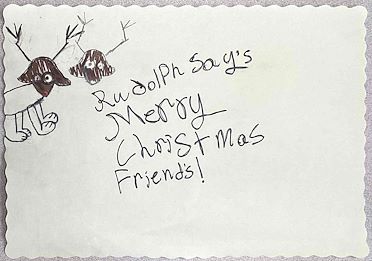 Rudolph Say's
Merry
Christmas
Friends!